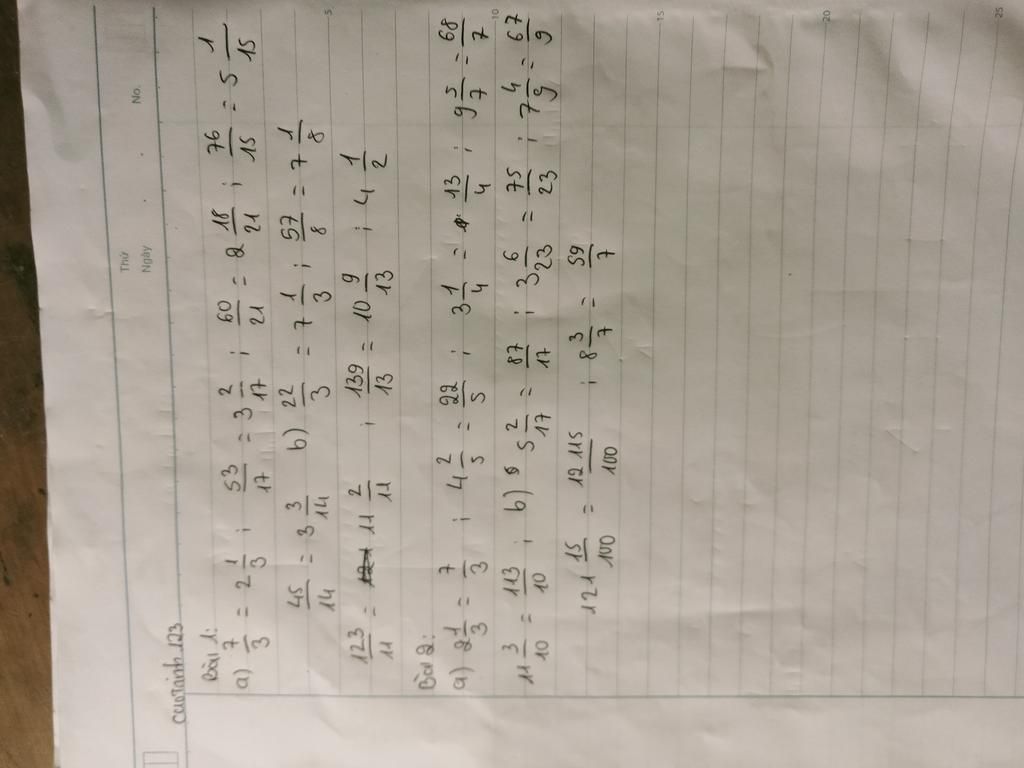 Thứ
Ngày
No.
Bài 1:
a) 7/3 = 2 1/3 ; 53/17 = 3 2/17 ; 60/21 = 2 18/21 ; 76/15 = 5 1/15
45/14 = 3 3/14 b) 22/3 = 7 1/3 ; 57/8 = 7 1/8
123/11 = 11 2/11 ; 139/13 = 10 9/13 ; 4 1/2
Bài 2:
a) 2 1/3 = 7/3 ; 4 2/5 = 22/5 ; 3 1/4 = 13/4 ; 9 5/7 = 68/7
11 3/10 = 113/10 ; b) 5 2/17 = 87/17 ; 3 6/23 = 75/23 ; 7 4/9 = 67/9
121 15/100 = 12115/100 ; 8 3/7 = 59/7
5
10
15
20
25